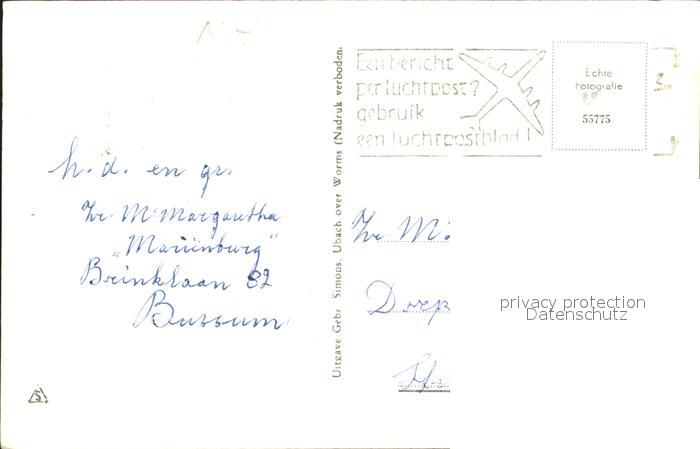 Een bericht
per luchtpost?
gebruik
een luchtpostblad!
Echte
Fotografie
55775
3
h. d. en gr.
Zr. M. Margaretha
"Mariënburg"
Brinklaan 82
Bussum
Uitgave Gebr. Simons, Ubach over Worms (Nadruk verboden)
Zr. M.
Dorp
privacy protection
Datenschutz
S